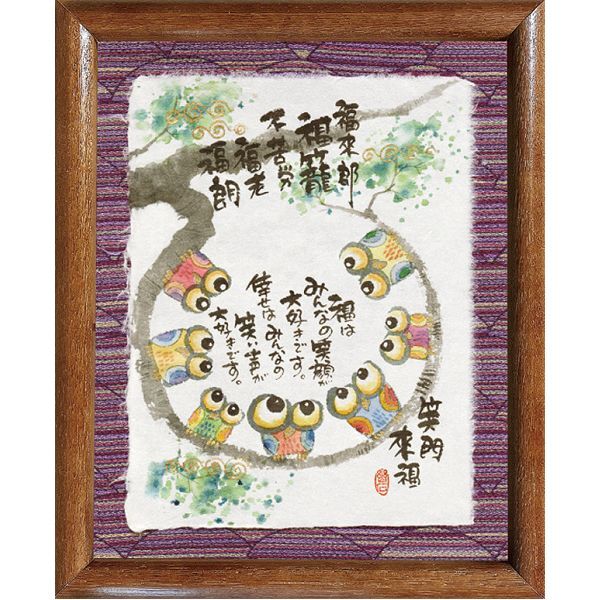 福来郎
福籠
不苦労
福老
福朗
福は
みんなの笑顔が
大好きです。
倖せはみんなの
笑い声が
大好きです。
笑門
来福